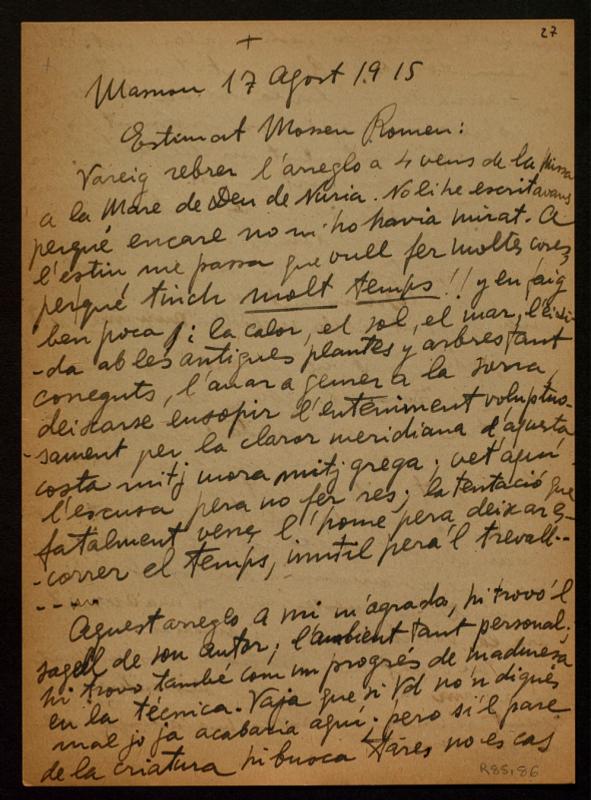 27
Masnou 17 Agost 1915
Estimat Mossen Romeu:
Vareig rebrer l'arreglo a 4 veus de la Missa
a la Mare de Deu de Nuria. No li he escrit avans
perqué encare no m'ho havia mirat. A
l'estiu me passa que vull fer moltes coses,
perqué tinch molt temps!! y en faig
ben poca; la calor, el sol, el mar, l'exi-
-da ab les antigues plantes y arbres tant
coneguts, l'anar a gemer a la sorra,
deixarse ensopir l'enteniment voluptuo-
-sament per la claror meridiana d'aquesta
costa mitj mora mitj grega; vet aquí
l'escusa pera no fer res; la tentació que
fatalment vens l'home pera deixar es-
-correr el temps, inutil pera'l trevall--
-----
Aquest arreglo a mi m'agrada, hi trovo'l
sagell de son autor; l'ambient tant personal.
hi trovo també com un progrés de maduresa
en la técnica. Vaja que si Vd no'n digués
mal jo ja acabaria aquí; pero si'l pare
de la criatura hi busca tares no es cas
R85,86